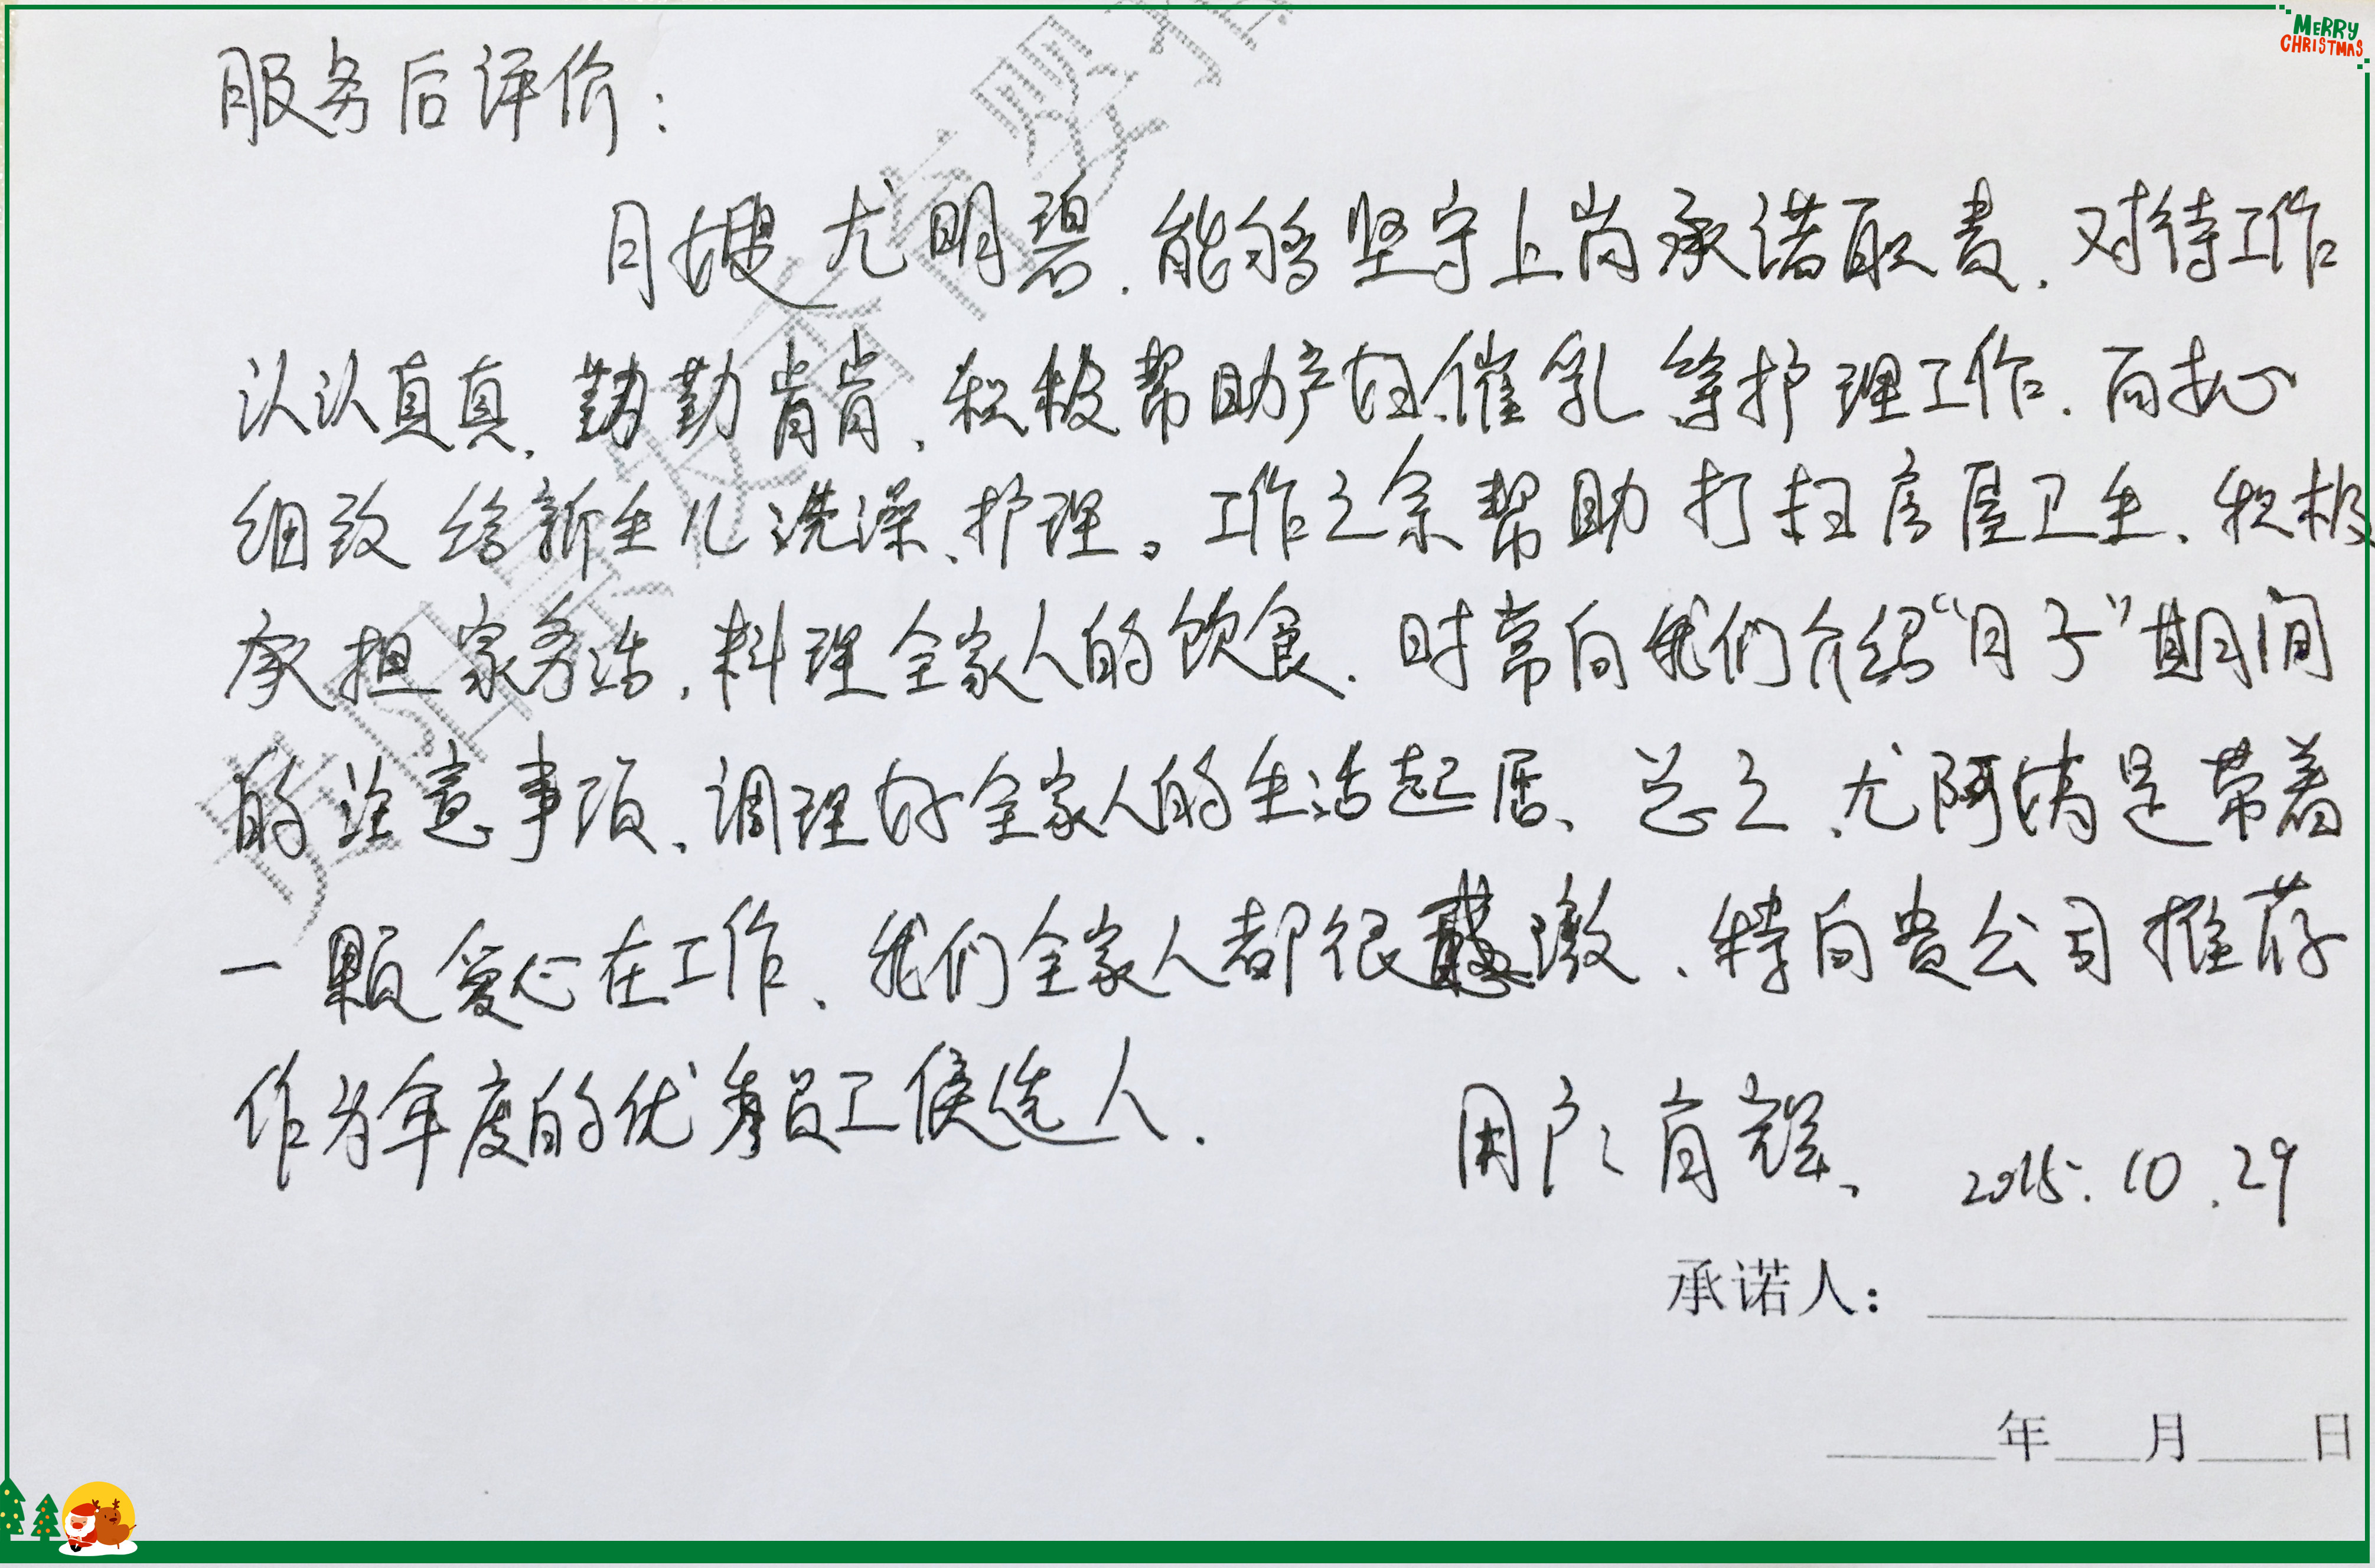 MERRY
CHRISTMAS
服务后评价：
月嫂尤明碧．能够坚守上岗承诺职责．对待工作
认认真真．勤勤肯肯．积极帮助产妇催乳等护理工作．而扣心
细致给新生儿洗澡、护理。工作之余帮助打扫房屋卫生．积极
承担家务活．料理全家人的饮食．时常向我们介绍“月子”期间
的注意事项、调理好全家人的生活起居、总之、尤阿姨是带着
一颗爱心在工作、我们全家人都很感激．特向贵公司推荐
作为年度的优秀员工候选人．
用户：肖 2015.10.29
承诺人：
年 月 日